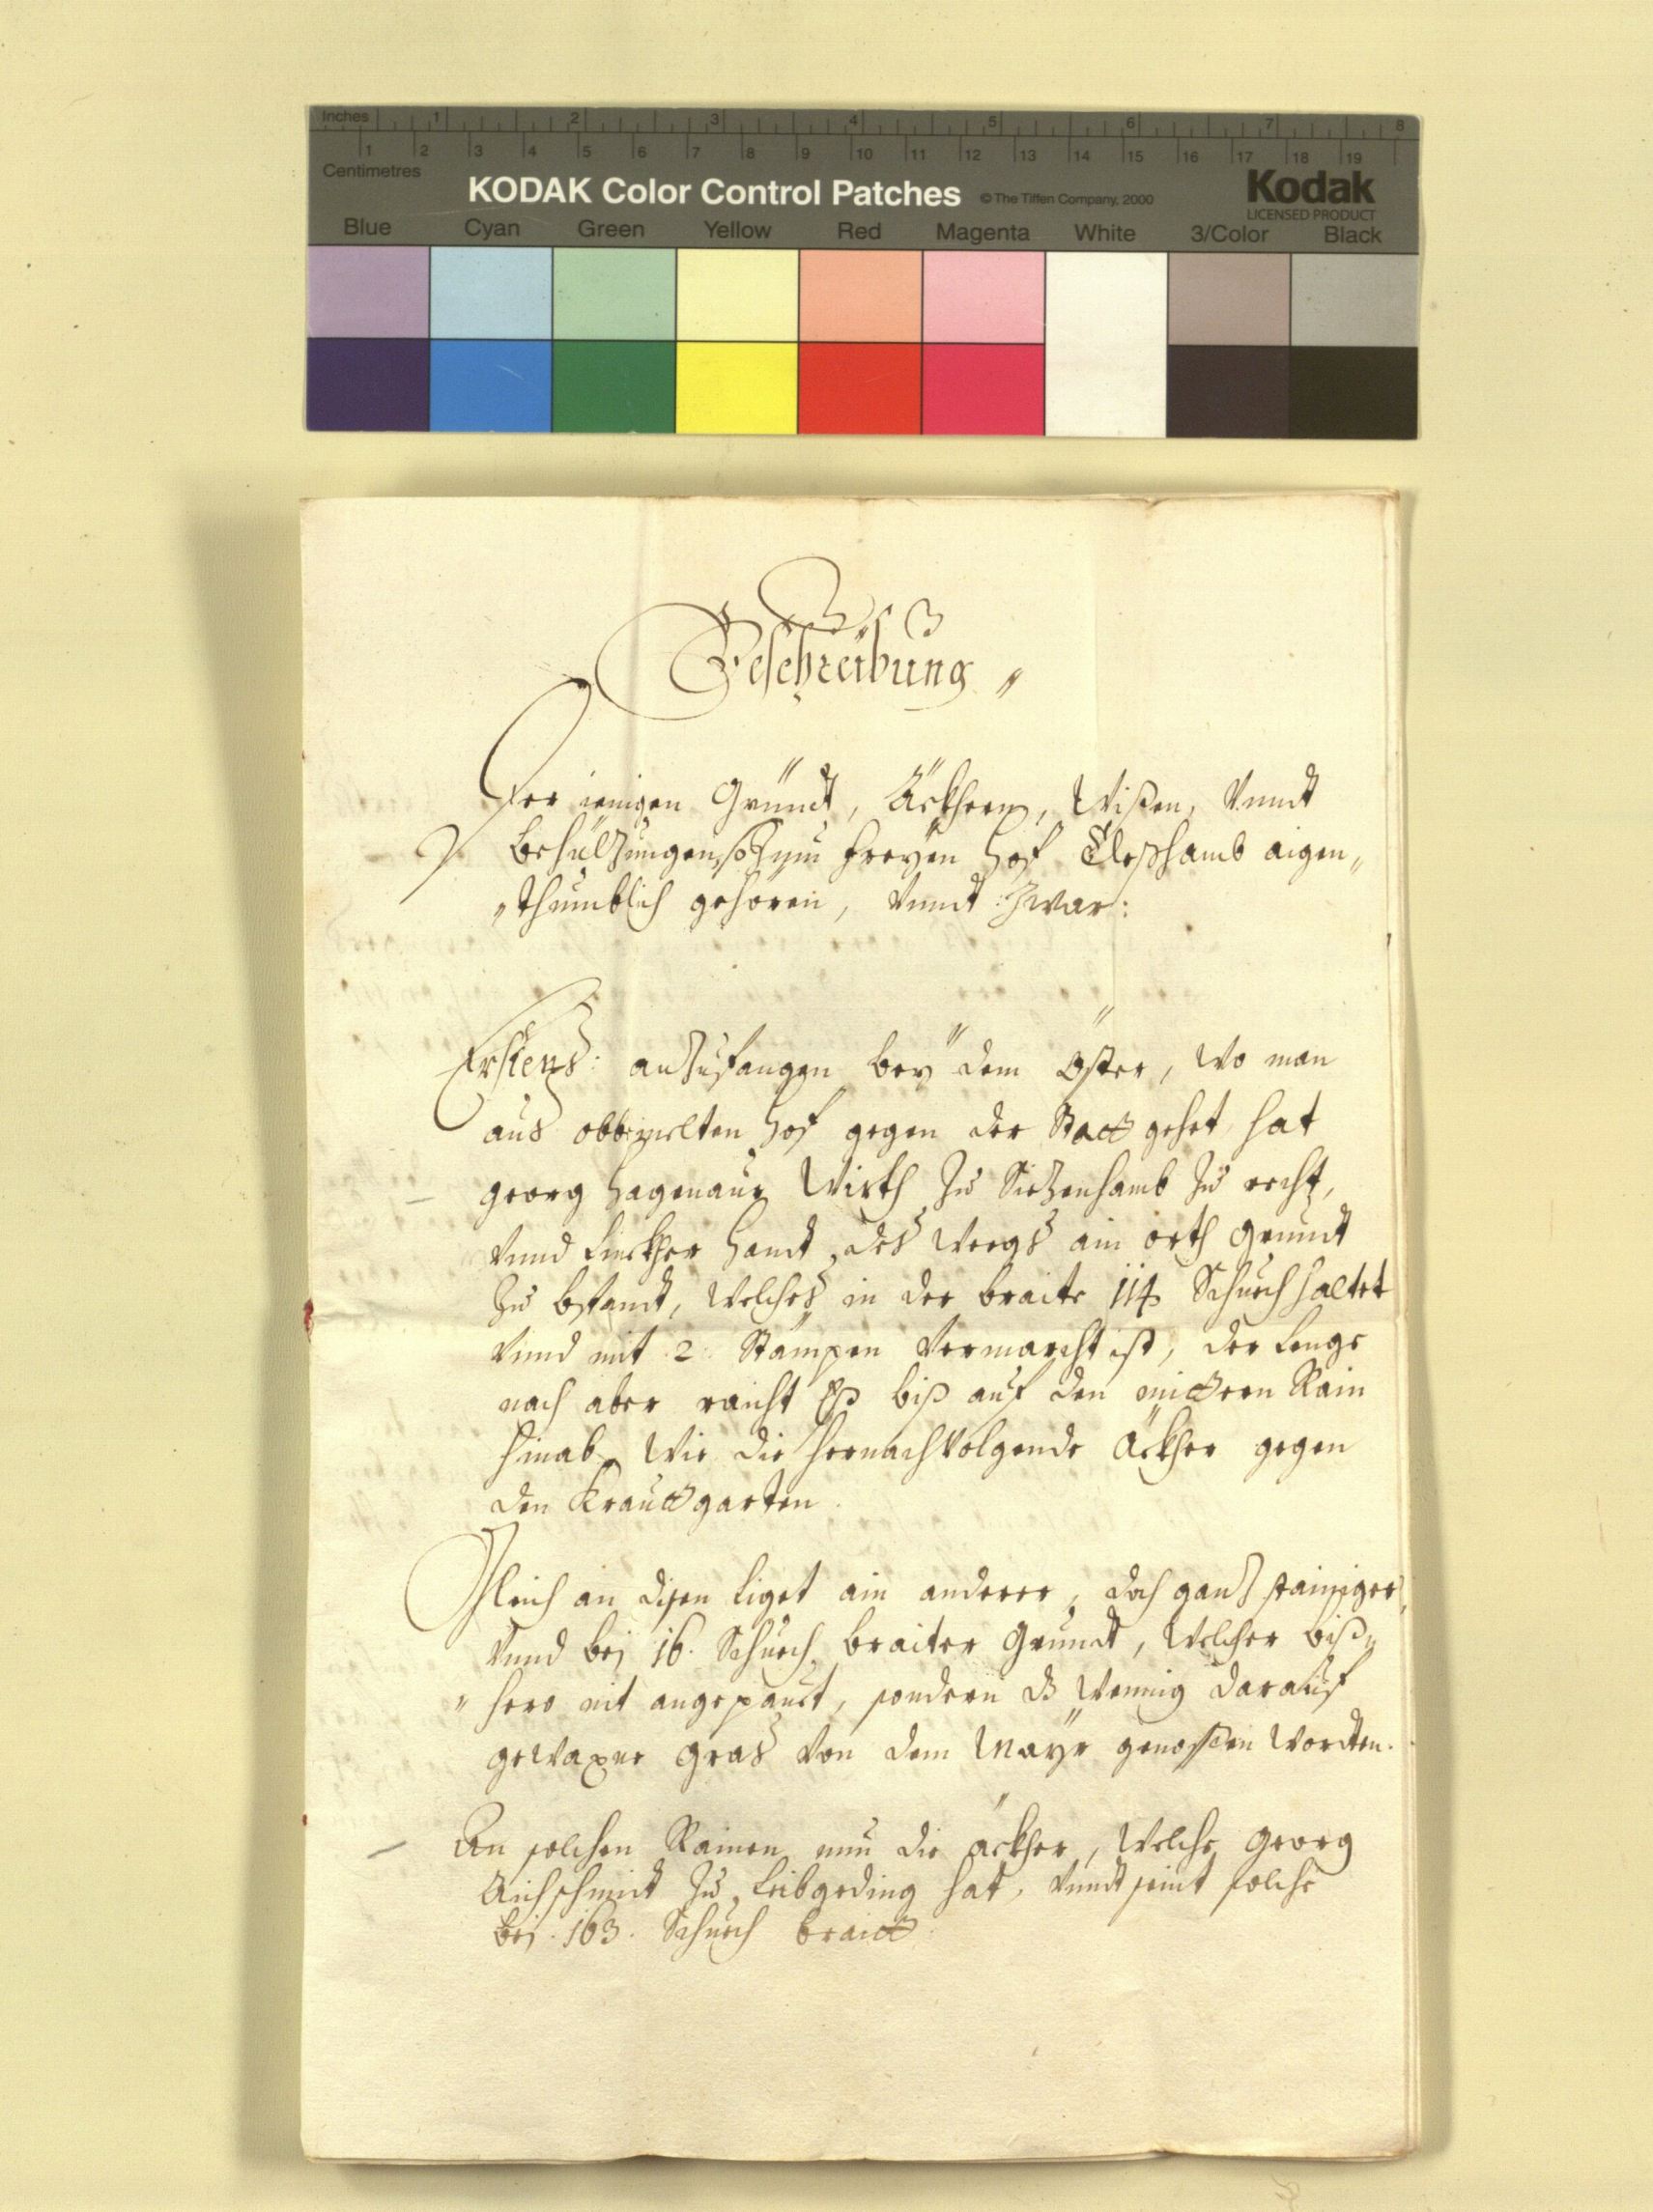 Inches 1 2 3 4 5 6 7 8
1 2 3 4 5 6 7 8 9 10 11 12 13 14 15 16 17 18 19
Centimetres
KODAK Color Control Patches © The Tiffen Company, 2000 Kodak
LICENSED PRODUCT
Blue Cyan Green Yellow Red Magenta White 3/Color Black
Beschreibung
Der ienigen Gründt, Äckhern, Wißen, Vnndt
behülzungen, so zum freÿen Hof Eleßhamb aigen„
„thumblich gehören, Vnndt zwar:
Erstens: anzufangen beÿ dem Öster, Wo man
aus obbemelten Hof gegen der Statt gehet, hat
georg Hagenaur Wirth Zu Siezenhamb Zu recht,
Vnnd linckher Handt, des Weegs ain orth grundt
Zu bstandt, Welches in der braite 114 Schuech haltet
Vnnd mit 2. Stämpen Vermarcht ist, der lenge
nach aber raicht Es biß auf den mittern Rain
hinab, Wie die hernachVolgende Äckher gegen
den Krauttgarten.
Gleich an disen liget ain anderer, doch ganz stainiger,
Vnnd bei 16. Schuech braiter Grundt, Welcher biß„
„hero nit angepaut, sondern dz Wennig darauf
gewaxne graß Von dem Maÿr genossen Wordten.
An solchen Rainen nun die äckher, Welche georg
Aichschmidt Zu Leibgeding hat, Vnndt seint solche
bei 163. Schuech braitt.